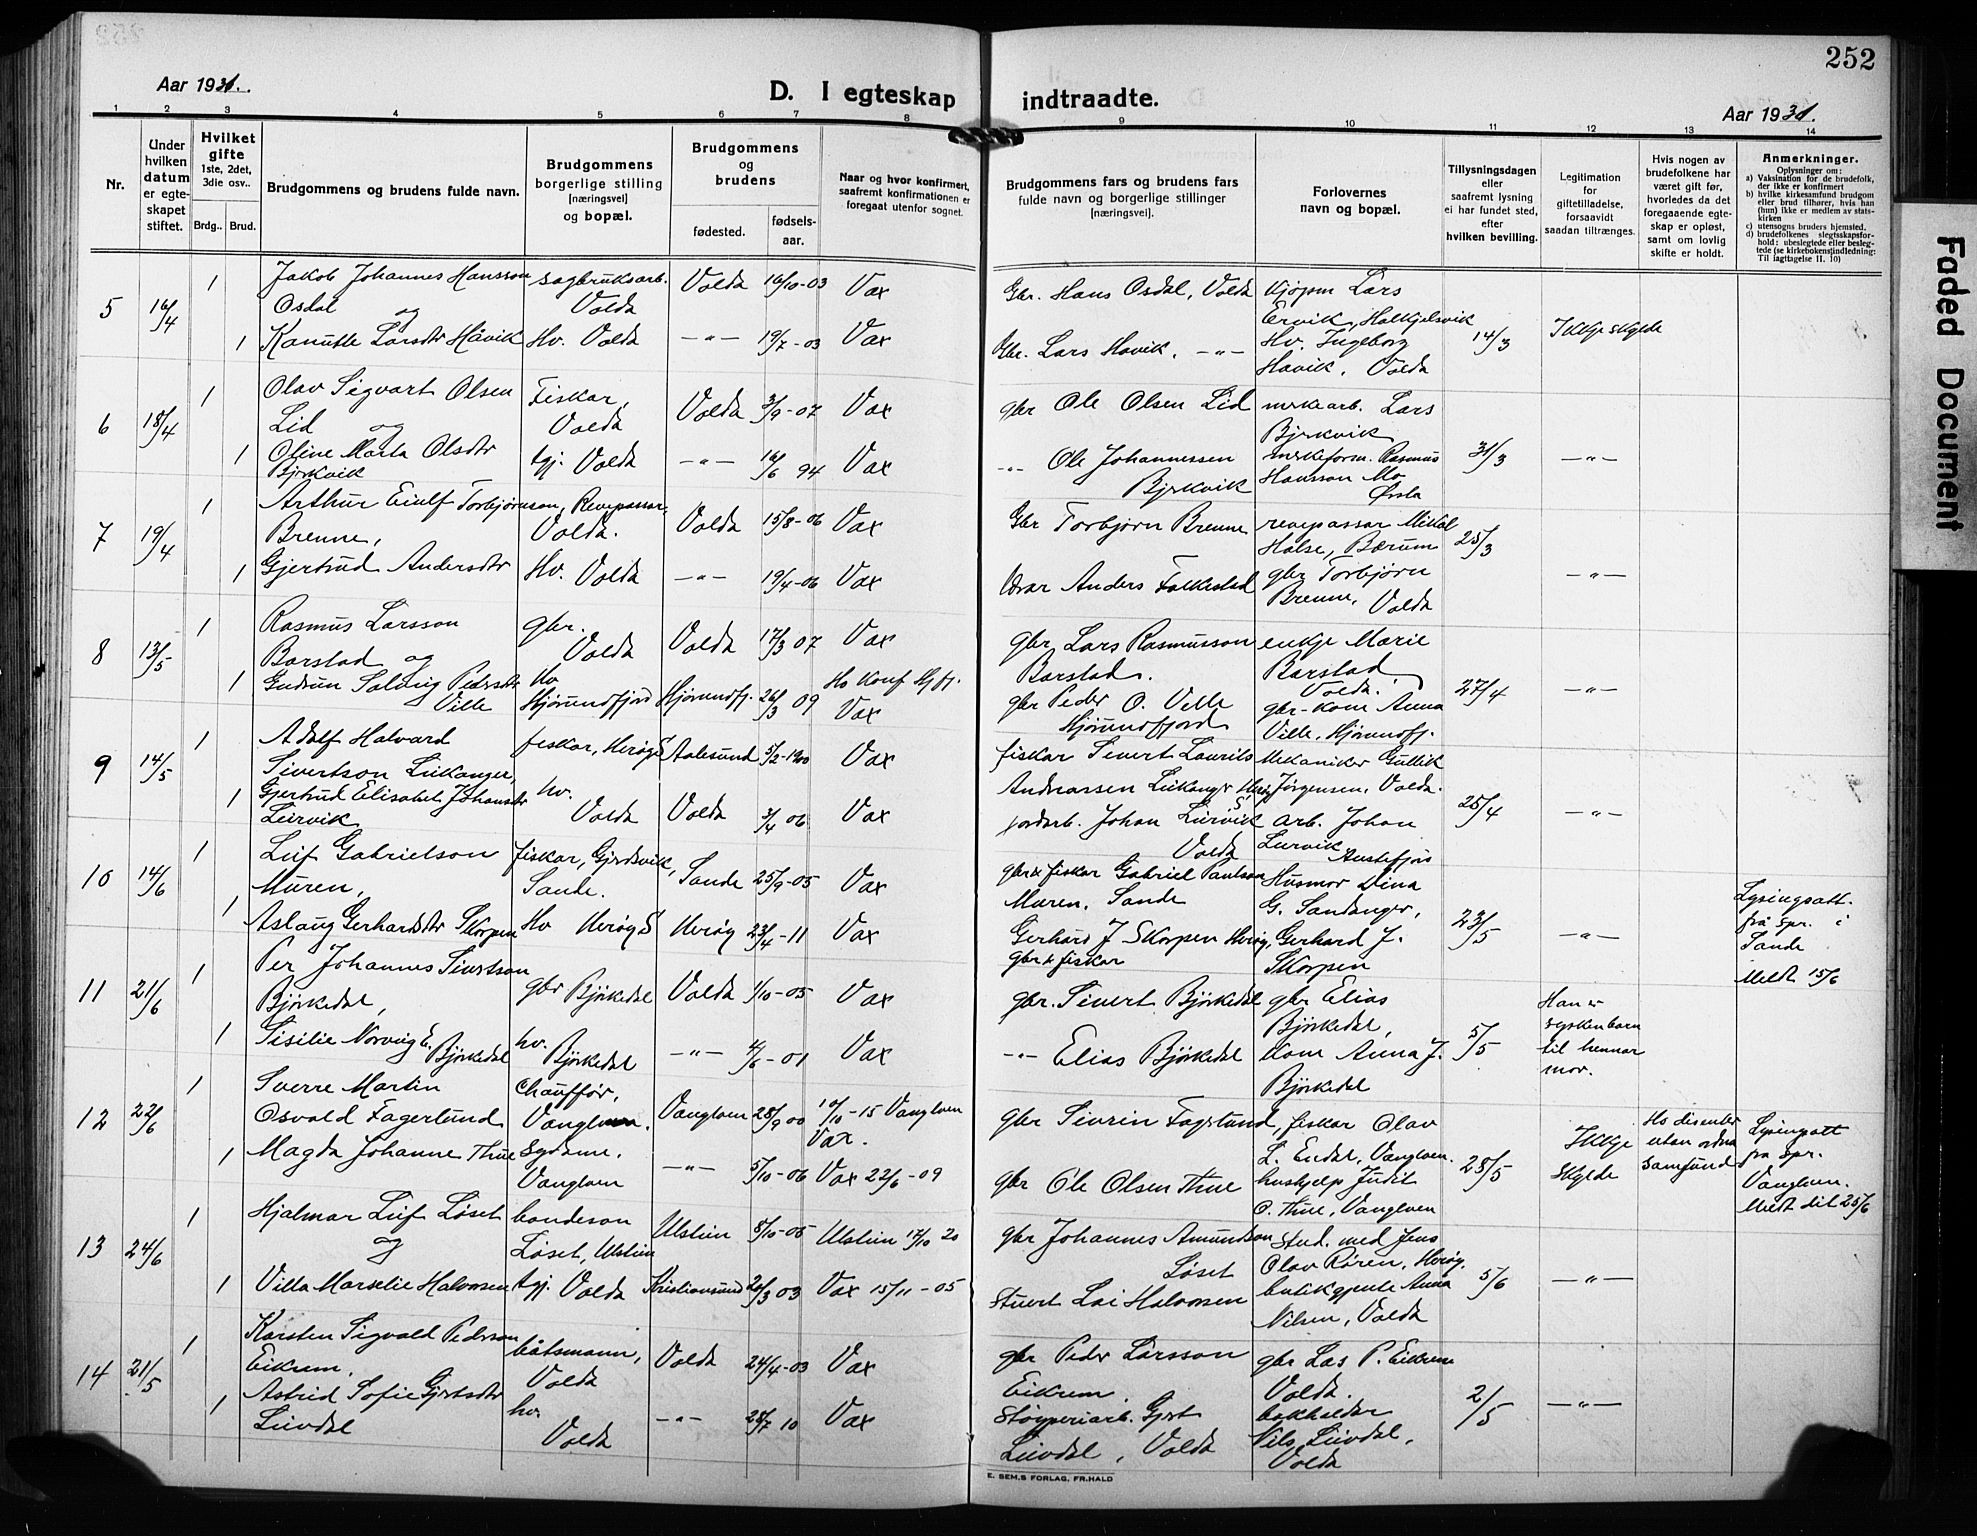 252
Aar 1931.
D. I egteskap indtraadte.
Aar 1931.
1 2 3 4 5 6 7 8 9 10 11 12 13 14
Nr.
Under hvilken datum er egte-skapet stiftet.
Hvilket gifte
1ste, 2det, 3die osv..
Brdg.. Brud.
Brudgommens og brudens fulde navn.
Brudgommens borgerlige stilling [næringsvei] og bopæl.
Brudgommens og brudens
fødested.
fødsels-aar.
Naar og hvor konfirmert, saafremt konfirmationen er foregaat utenfor sognet.
Brudgommens fars og brudens fars fulde navn og borgerlige stillinger [næringsvei].
Forlovernes navn og bopæl.
Tillysningsdagen eller saafremt lysning ei har fundet sted, efter hvilken bevilling.
Legitimation for giftetilladelse, forsaavidt saadan tiltrænges.
Hvis nogen av brudefolkene har været gift før, hvorledes da det foregaaende egte-skap er opløst, samt om lovlig skifte er holdt.
Anmerkninger.
Oplysninger om:
a) Vaksination for de brudefolk, der ikke er konfirmert
b) hvilke kirkesamfund brudgom eller brud tilhører, hvis han (hun) ikke er medlem av stats-kirken
c) utensogns bruders hjemsted.
d) brudefolkenes slegtsskapsfor-hold: ubeslegtede eller besleg-tede (se kirkebokensindledning: Til iagttagelse II. 10)
5 16/4 1 Jakob Johannes Hansson Osdal og
sagbruksarb. Volda
Volda 16/10-03 Vax
Gbr. Hans Osdal, Volda
Kjøpm Lars Ervik, Halkjelsvik
1 Kanutte Larsdtr Håvik
Hv. Volda -"- 19/7-03 Vax
Gbr. Lars Havik. -"-
Hv. Ingeborg Håvik, Volda
14/3 Ikkje skylde
6 18/4 1 Olav Sigvart Olsen Lid og
Fiskar, Volda
Volda 3/9-07 Vax
gbr Ole Olsen Lid
Lars Bjrkvik
1 Oline Marta Olsdtr Bjrkvik
tgj. Volda -"- 16/6 94 Vax
-"- Ole Johannessen Bjrkvik
Rasmus Hansson Mo Ørsta
31/3 -"-
7 19/4 1 Arthur Eiulf Torbjørnson Brenne,
Revepassar, Volda.
Volda 15/8-06 Vax
Gbr Torbjørn Brenne
revepassar Mikal Halse, Bærum
1 Gjertrud Andersdtr
Hv. Volda -"- 19/4-06 Vax
Anders Folkestad
gbr Torbjørn Brenne, Volda
25/3 -"-
8 13/5 1 Rasmus Larsson Barstad og
gbr. Volda
Volda 17/3 07 Vax
gbr Lars Rasmusson Barstad.
enkje Marie Barstad Volda.
1 Gudrun Solveig Pedersdtr Ville
Hv Hjørundfjord
Hjørundfj. 26/3 09
Ho konf Hjfj. Vax
gbr Peder O. Velle Hjørundfjord
gbr-kone Anna Ville, Hjørundfj.
27/4 -"-
9 14/5 1 Adolf Halvard Sivertson Leikanger,
fiskar, Herøy S
Aalesund 5/2-1900 Vax
fiskar Sivert Laurits Andreassen Leikanger Herøy S
Mekaniker Gullik Jørgensen, Volda.
1 Gjertrud Elisabet Johansdtr Leirvik
hv. Volda
Volda 3/4 06 Vax
jordarb. Johan Leirvik Volda
arb. Johan Leirvik Austefjord
25/4 -"-
10 14/6 1 Leif Gabrielson Muren,
fiskar, Gjerdsvik, Sande.
Sande 25/9-05 Vax
gbr & fiskar Gabriel Paulson Muren, Sande
Husmor Dina G. Sandanger,
1 Aslaug Gerhardsdtr Skorpen
Hv Herøy S
Herøy 23/4-11 Vax
Gerhard J Skorpen Herøy, gbr & fiskar
Gerhard J. Skorpen
23/5 -"-
Lysingsatt. frå spr. i Sande
Meldt 15/6
11 21/6 1 Per Johannes Sivertson Bjørkedal,
gbr Bjørkedal
Volda 1/10-05 Vax
gbr. Sivert Bjørkedal
gbr Elias Bjørkedal,
1 Sisilie Norveig E. Bjørkedal
hv. Bjørkedal -"- 4/6-01 Vax
-"- Elias Bjørkedal
Kone Anna J. Bjørkedal
5/5
Han er syskenbarn til hennar mor.
12 22/6 1 Sverre Martin Osvald Fagerlund
Chauffør, Vanylven.
Vanylven 28/9 00
10/10-15 Vanylven Vax.
gbr Sivrin Fagerlund,
fiskar Olav L. Endal, Vanylven.
1 Magda Johanne Thue
Sydame. Vanylven
-"- 5/10-06 Vax 22/6-09
gbr Ole Olsen Thue
hushjelp Judit O. Thue, Vanylven
28/5 Ikkje skylde
Ho disenter utan ordna samfund
Lysingsatt fra spr. Vanylven.
Meldt dit 25/6
13 24/6 1 Hjalmar Leif Løset og
bondeson Løset, Ulstein
Ulstein 8/10-05 Ulstein 17/10 20
gbr Johannes Amundson Løset
Stud. med Jens Olav Røren, Herøy.
1 Villa Marselie Halvorsen
tgj. Volda
Kristiansund 20/3 03 Vax 15/11-05
Stuert Lai Halvorsen
butikgjente Anna Nilsen, Volda
5/6 -"-
14 21/5 1 Karsten Sigvald Pederson Eikrem,
båtsmann, Volda
Volda 24/4-03 Vax
gbr Peder Larsson Eikrem.
gbr Las P. Eikrem Volda.
1 Astrid Sofie Gjertsdtr Leivdal
hv. Volda
-"- 28/7 10 Vax
Støyperiarb. Gjert Leivdal, Volda
bokhaldar Nils Leivdal, Volda
2/5 -"-
E. SEM.S FORLAG, FR.HALD
Faded Document